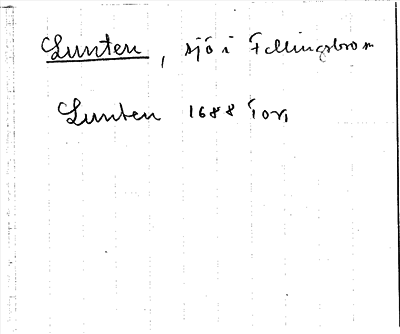 Lunten, sjö i Fellingsbro sn
Lunten 1688